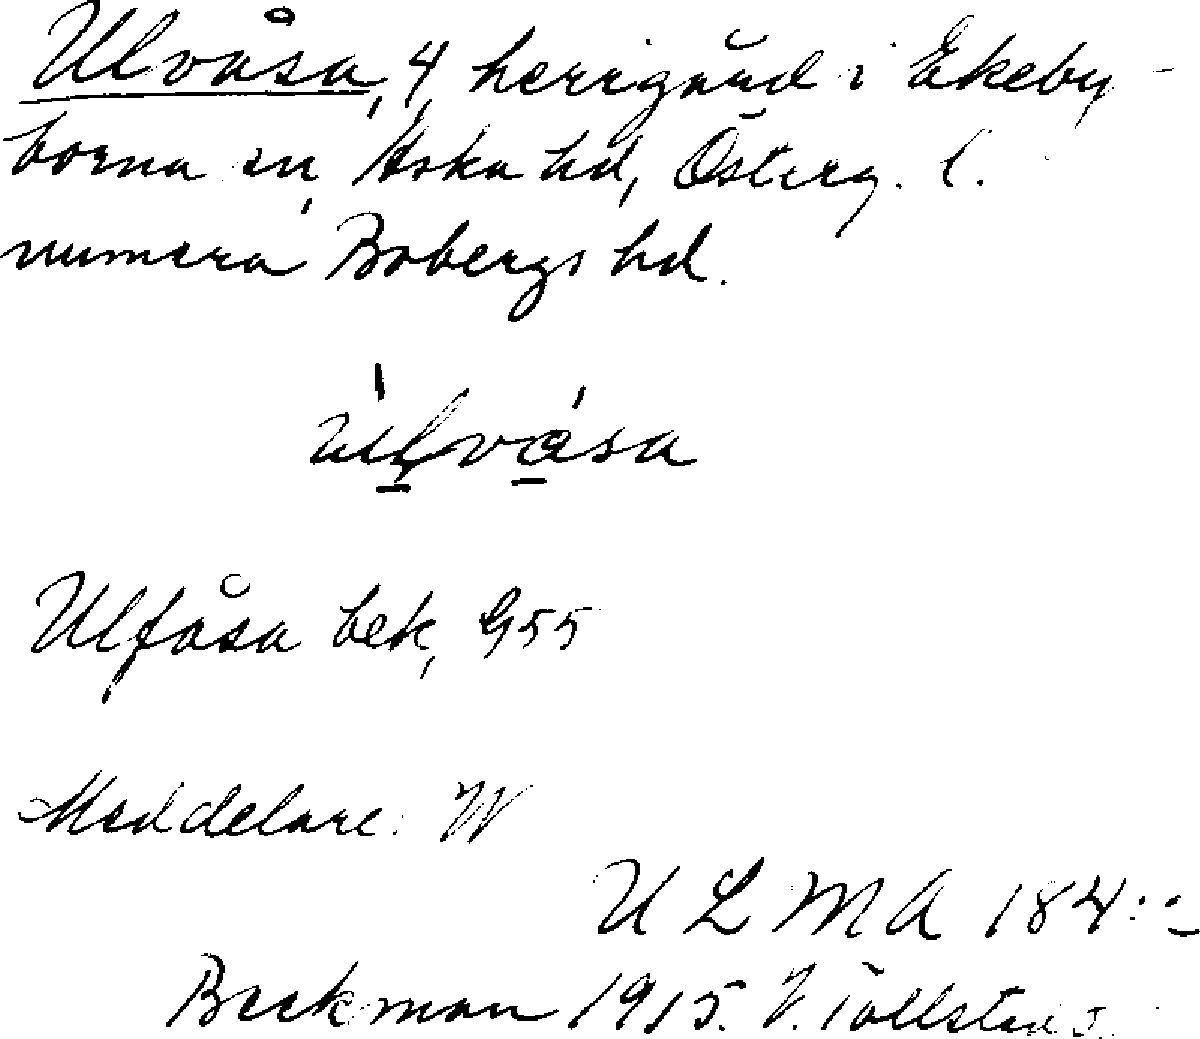 Ulvåsa, 4, herrgård i Ekeby-
borna sn, Aska hd, Österg. l.
numera Bobergs hd.
úlvása
Ulfåsa bek, G55
Meddelare: W
ULMA 184:
Beckman 1915. V.